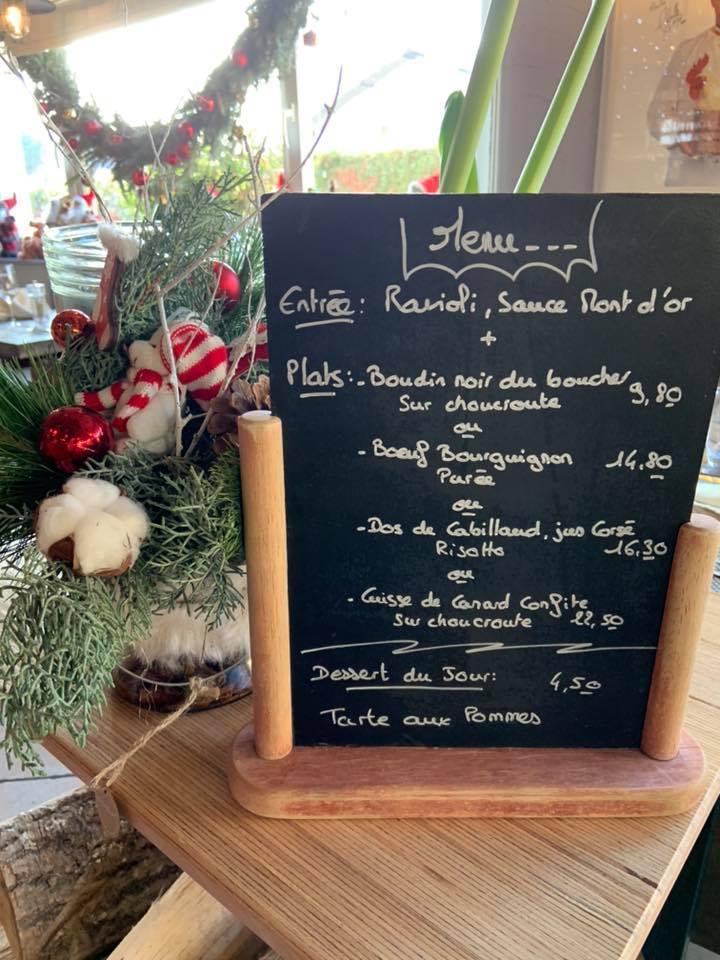 Menu---
Entrée: Ravioli, Sauce Mont d'or
+
Plats: - Boudin noir du boucher 9,80
Sur choucroute
ou
- Boeuf Bourguignon 14,80
Purée
ou
- Dos de Cabillaud, jus Corsé
Risotto 16,30
ou
- Cuisse de Canard Confite
Sur choucroute 22,50
Dessert du Jour: 4,50
Tarte aux Pommes